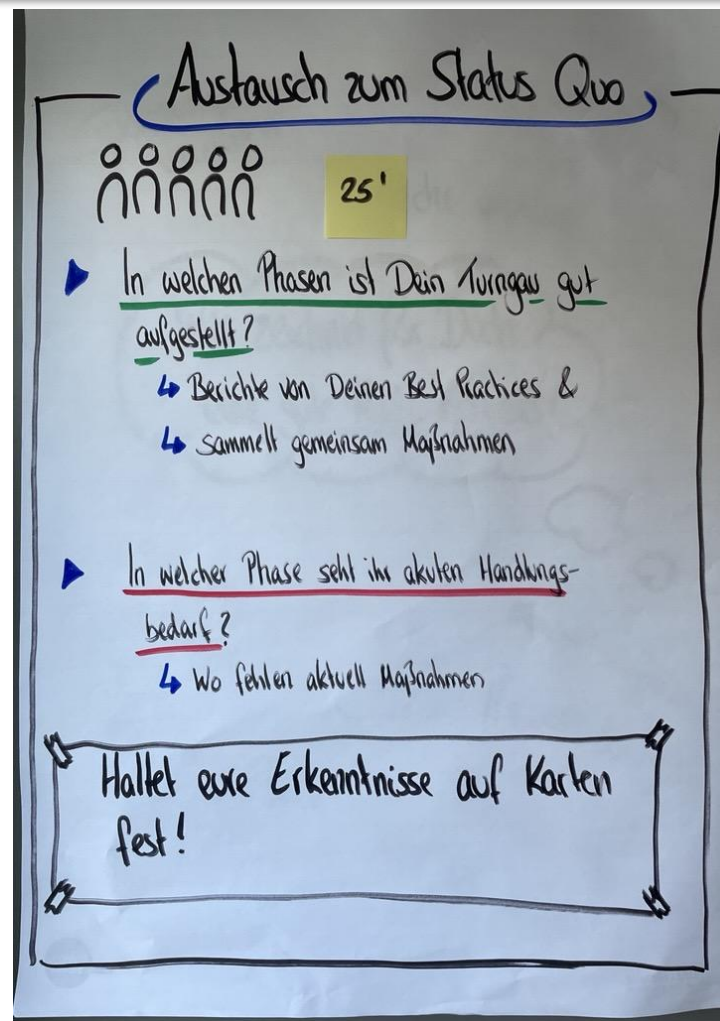 Austausch zum Status Quo
25'
In welchen Phasen ist Dein Turngau gut
aufgestellt?
↳ Berichte von Deinen Best Practices &
↳ sammelt gemeinsam Maßnahmen
In welcher Phase seht ihr akuten Handlungs-
bedarf?
↳ Wo fehlen aktuell Maßnahmen
Haltet eure Erkenntnisse auf Karten
fest!